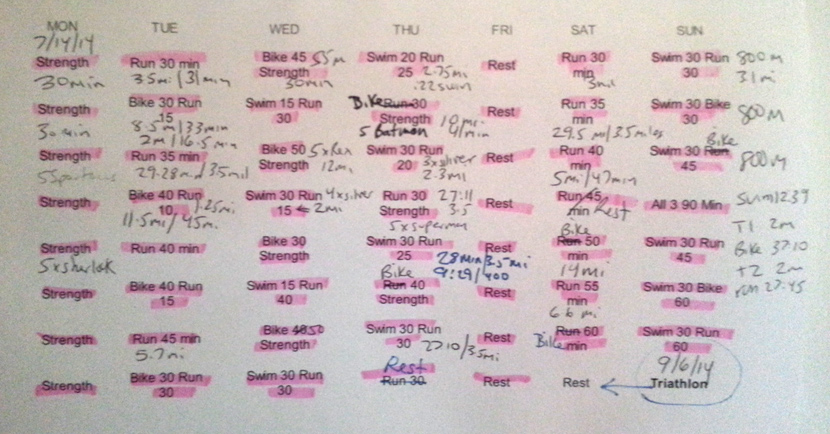 MON TUE WED THU FRI SAT SUN
7/14/14
Strength Run 30 min Bike 45 55m Swim 20 Run Rest Run 30 Swim 30 Run 800m
30min 3.5mi/31min Strength 30min 25 2.75mi min 3mi 30 31mi
.22swim
Strength Bike 30 Run Swim 15 Run Bike Run 30 Rest Run 35 Swim 30 Bike 800m
30min 15 30 Strength 10mi min 30
8.5mi/33min 5 Batman 41min 29.5 mi/3.5miles
2mi/16.5min Bike
Strength Run 35 min Bike 50 5xRen Swim 30 Run Rest Run 40 Swim 30 Run 800m
5Spartans 29.28md 3.5mil Strength 12mi 20 3xsilver min 45
2.3mi 5mi/47min
Strength Bike 40 Run Swim 30 Run 4xsilver Run 30 27:11 Rest Run 45 All 3 90 Min Swim1239
10 1.25mi 15 ← 2mi Strength 3.5 min Rest T1 2m
11.5mi/45m. 5xsuperman Bike
Strength Run 40 min Bike 30 Swim 30 Run Rest Run 50 Swim 30 Run Bike 37:10
5xsherlok Strength 25 28min/3.5mi 14mi 45 T2 2m
Bike 9:29/400
Strength Bike 40 Run Swim 15 Run Run 40 Rest Run 55 Swim 30 Bike run 27:45
15 40 Strength min 60
6.6 mi
Strength Run 45 min Bike 40 50 Swim 30 Run Rest Run 60 Swim 30 Run
5.7mi Strength 30 2710/3.5mi Bike min 60
Rest 9/6/14
Strength Bike 30 Run Swim 30 Run Run 30 Rest Rest ← Triathlon
30 30